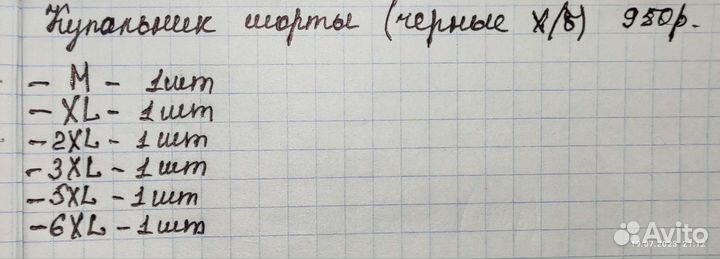 Купальник шорты (черные х/б) 950р.
- M - 1шт
- XL - 1шт
- 2XL - 1шт
- 3XL - 1шт
- 5XL - 1шт
- 6XL - 1шт
Avito
19.07.2023 21:12